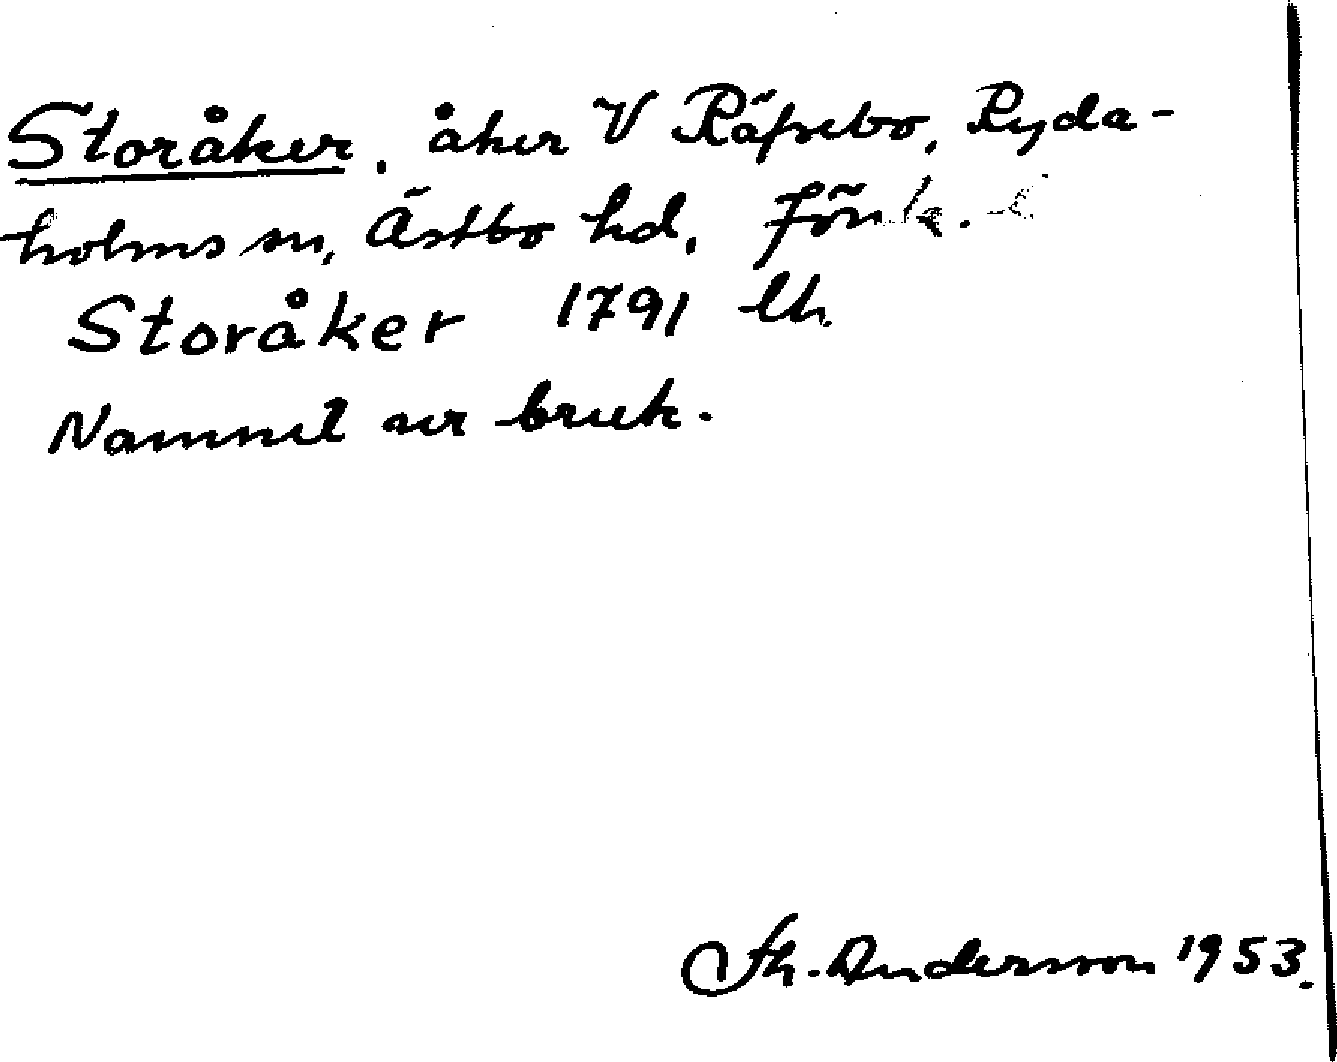 Storåker, åker V Räfsebo, Ryda-
holms sn, Östbo hd, Jönk. l
Storåker 1791 lh.
Namnet ur bruk.
Th. Andersson 1953.